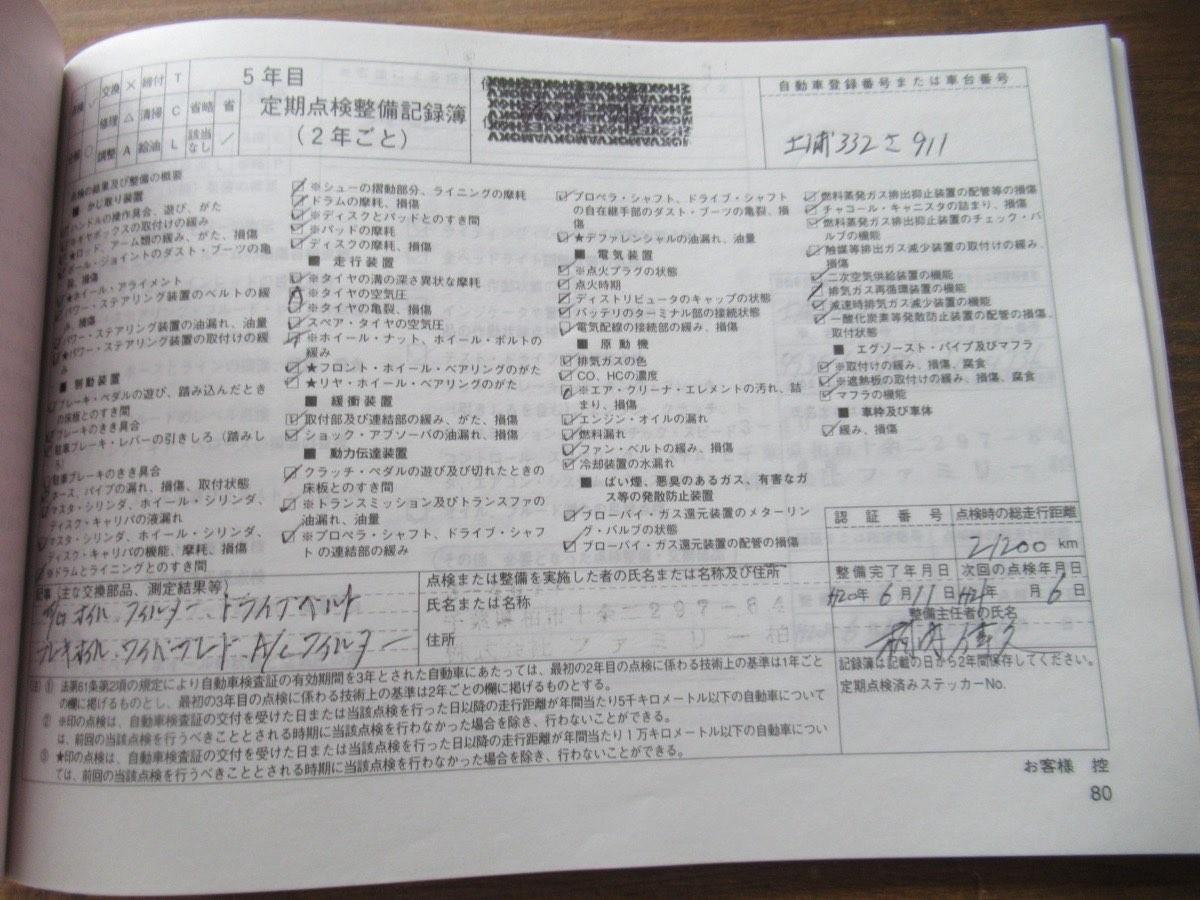 交換 × 締付 T
修理 △ 清掃 C 省略 省
調整 A 給油 L 該当なし ／
5年目
定期点検整備記録簿
（2年ごと）
自動車登録番号または車台番号
土浦332さ911
点検の結果及び整備の概要
■ かじ取り装置
ハンドルの操作具合、遊び、がた
ギヤボックスの取付けの緩み
★ロッド、アーム類の緩み、がた、損傷
ボール・ジョイントのダスト・ブーツの亀
裂、損傷
★ホイール・アライメント
パワー・ステアリング装置のベルトの緩
み、損傷
パワー・ステアリング装置の油漏れ、油量
★パワー・ステアリング装置の取付けの緩
み
■ 制動装置
ブレーキ・ペダルの遊び、踏み込んだとき
の床板とのすき間
ブレーキのきき具合
駐車ブレーキ・レバーの引きしろ（踏みし
ろ）
駐車ブレーキのきき具合
ホース、パイプの漏れ、損傷、取付状態
マスタ・シリンダ、ホイール・シリンダ、
ディスク・キャリパの液漏れ
マスタ・シリンダ、ホイール・シリンダ、
ディスク・キャリパの機能、摩耗、損傷
※ドラムとライニングとのすき間
※シューの摺動部分、ライニングの摩耗
ドラムの摩耗、損傷
※ディスクとパッドとのすき間
※パッドの摩耗
ディスクの摩耗、損傷
■ 走行装置
※タイヤの溝の深さ異状な摩耗
※タイヤの空気圧
※タイヤの亀裂、損傷
スペア・タイヤの空気圧
※ホイール・ナット、ホイール・ボルトの
緩み
★フロント・ホイール・ベアリングのがた
★リヤ・ホイール・ベアリングのがた
■ 緩衝装置
取付部及び連結部の緩み、がた、損傷
ショック・アブソーバの油漏れ、損傷
■ 動力伝達装置
クラッチ・ペダルの遊び及び切れたときの
床板とのすき間
※トランスミッション及びトランスファの
油漏れ、油量
※プロペラ・シャフト、ドライブ・シャフ
トの連結部の緩み
プロペラ・シャフト、ドライブ・シャフト
の自在継手部のダスト・ブーツの亀裂、損
傷
★デファレンシャルの油漏れ、油量
■ 電気装置
※点火プラグの状態
点火時期
ディストリビュータのキャップの状態
バッテリのターミナル部の接続状態
電気配線の接続部の緩み、損傷
■ 原動機
排気ガスの色
CO、HCの濃度
※エア・クリーナ・エレメントの汚れ、詰
まり、損傷
エンジン・オイルの漏れ
燃料漏れ
ファン・ベルトの緩み、損傷
冷却装置の水漏れ
■ ばい煙、悪臭のあるガス、有害なガ
ス等の発散防止装置
ブローバイ・ガス還元装置のメターリン
グ・バルブの状態
ブローバイ・ガス還元装置の配管の損傷
燃料蒸発ガス排出抑止装置の配管等の損傷
チャコール・キャニスタの詰まり、損傷
燃料蒸発ガス排出抑止装置のチェック・バ
ルブの機能
触媒等排出ガス減少装置の取付けの緩み、
損傷
二次空気供給装置の機能
排気ガス再循環装置の機能
減速時排気ガス減少装置の機能
一酸化炭素等発散防止装置の配管の損傷、
取付状態
■ エグゾースト・パイプ及びマフラ
※取付けの緩み、損傷、腐食
※遮熱板の取付けの緩み、損傷、腐食
マフラの機能
■ 車枠及び車体
緩み、損傷
認証番号 点検時の総走行距離
21200 km
整備完了年月日 次回の点検年月日
H20年6月11日 H21年 月6日
整備主任者の氏名
記録簿は記載の日から2年間保存してください。
定期点検済みステッカーNo.
記事（主な交換部品、測定結果等）
オイル フィルター ドライブベルト
ブレーキオイル ワイパーブレード A/Cフィルター
点検または整備を実施した者の氏名または名称及び住所
氏名または名称
住所
（注）① 法第61条第2項の規定により自動車検査証の有効期間を3年とされた自動車にあたっては、最初の2年目の点検に係わる技術上の基準は1年ごと
の欄に掲げるものとし、最初の3年目の点検に係わる技術上の基準は2年ごとの欄に掲げるものとする。
② ※印の点検は、自動車検査証の交付を受けた日または当該点検を行った日以降の走行距離が年間当たり5千キロメートル以下の自動車について
は、前回の当該点検を行うべきこととされる時期に当該点検を行わなかった場合を除き、行わないことができる。
③ ★印の点検は、自動車検査証の交付を受けた日または当該点検を行った日以降の走行距離が年間当たり1万キロメートル以下の自動車につい
ては、前回の当該点検を行うべきこととされる時期に当該点検を行わなかった場合を除き、行わないことができる。
お客様 控
80